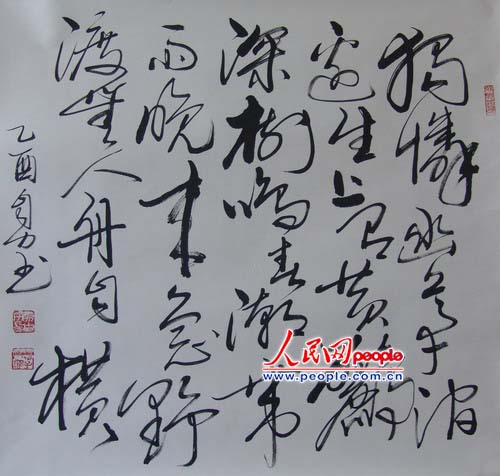 獨憐幽草澗
邊生上有黄鸝
深樹鳴春潮帶
雨晚来急野
渡無人舟自横
乙酉书
人民网 people
www.people.com.cn